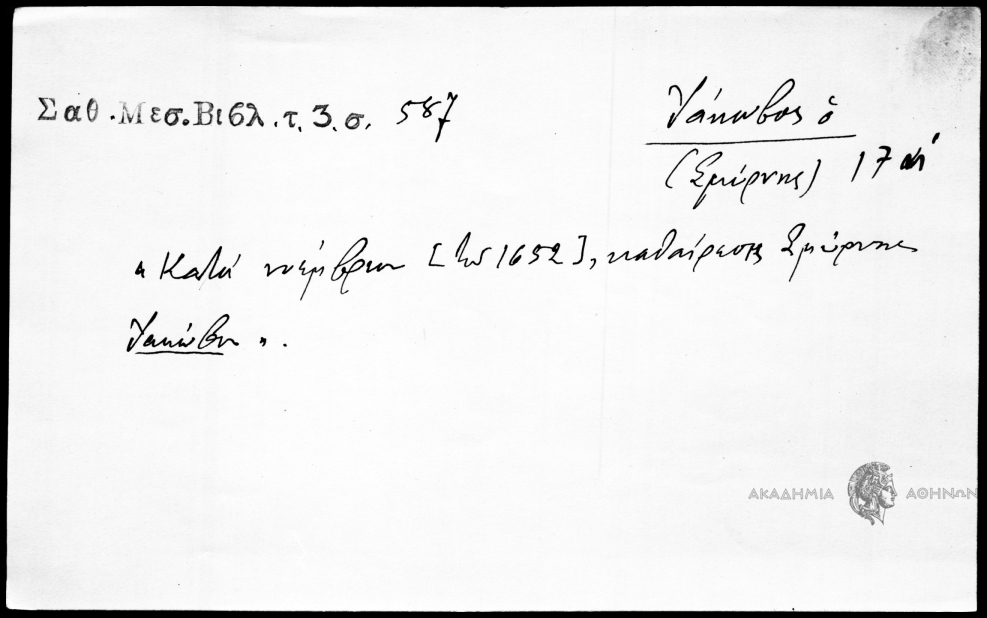 Σαθ. Μεσ. Βιβλ. τ. 3. σ. 587
Ἰάκωβος ὁ
(Σμύρνης) 17 αἰ
" Κατὰ νοέμβριον [τοῦ 1652], καθαίρεσις Σμύρνης
Ἰακώβου ".
ΑΚΑΔΗΜΙΑ ΑΘΗΝΩΝ